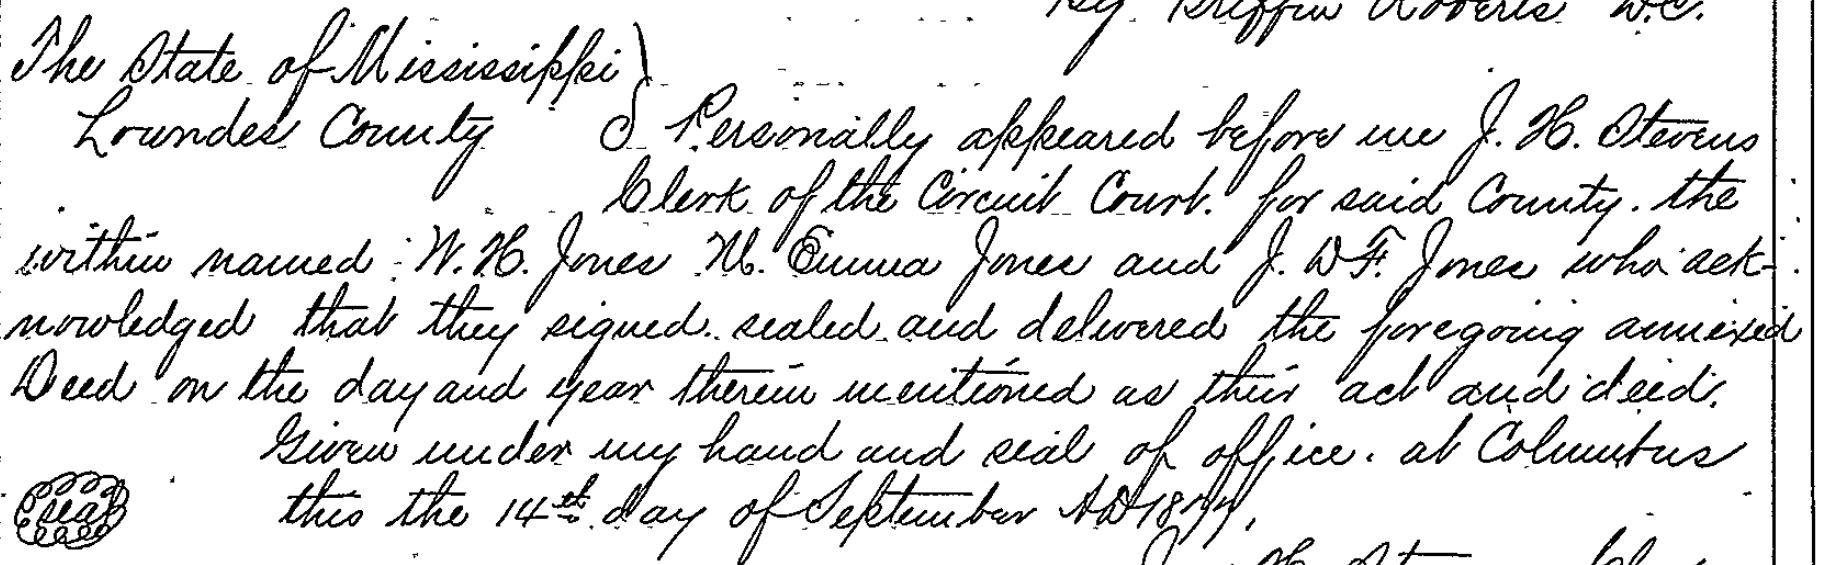 By Griffin Roberts D.C.
The State of Mississippi
Lowndes County } Personally appeared before me J. H. Stevens
Clerk of the Circuit Court. for said County. the
within named W. H. Jones M. Emma Jones and J. W. F. Jones who ack-
nowledged that they signed. sealed and delivered the foregoing annexed
Deed on the day and year therein mentioned as their act and deed.
Given under my hand and seal of office. at Columbus
seal this the 14th day of September AD